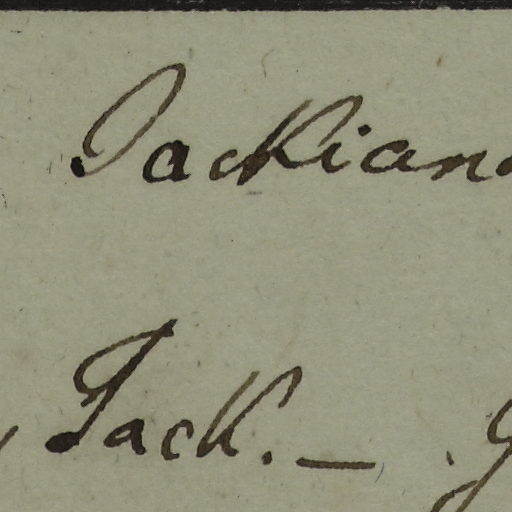 Jackian
Jack. —